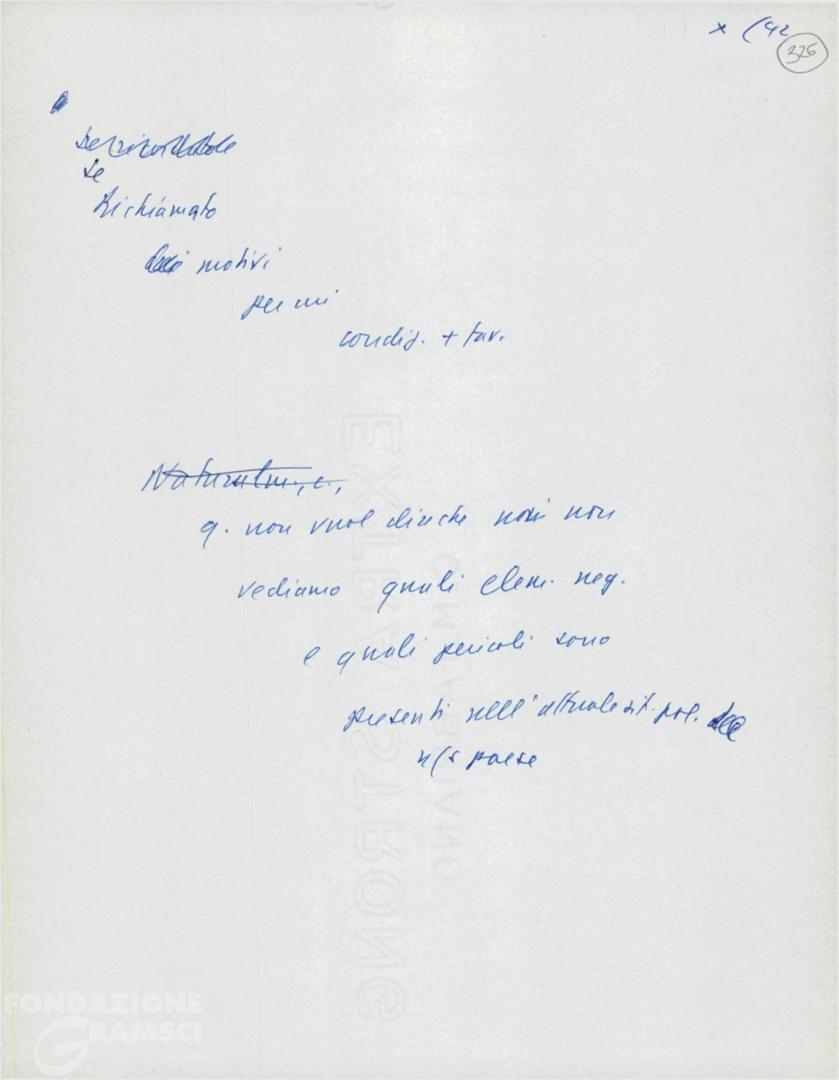 x (42
326
se
Richiamato
motivi
per cui
condiz. + fav.
Naturalm., c.,
q. non vuol dire che noi non
vediamo quali elem. neg.
e quali pericoli sono
presenti nell'attuale sit. pol. del
n/s paese
EXTRA STRONG
FONDAZIONE
GRAMSCI